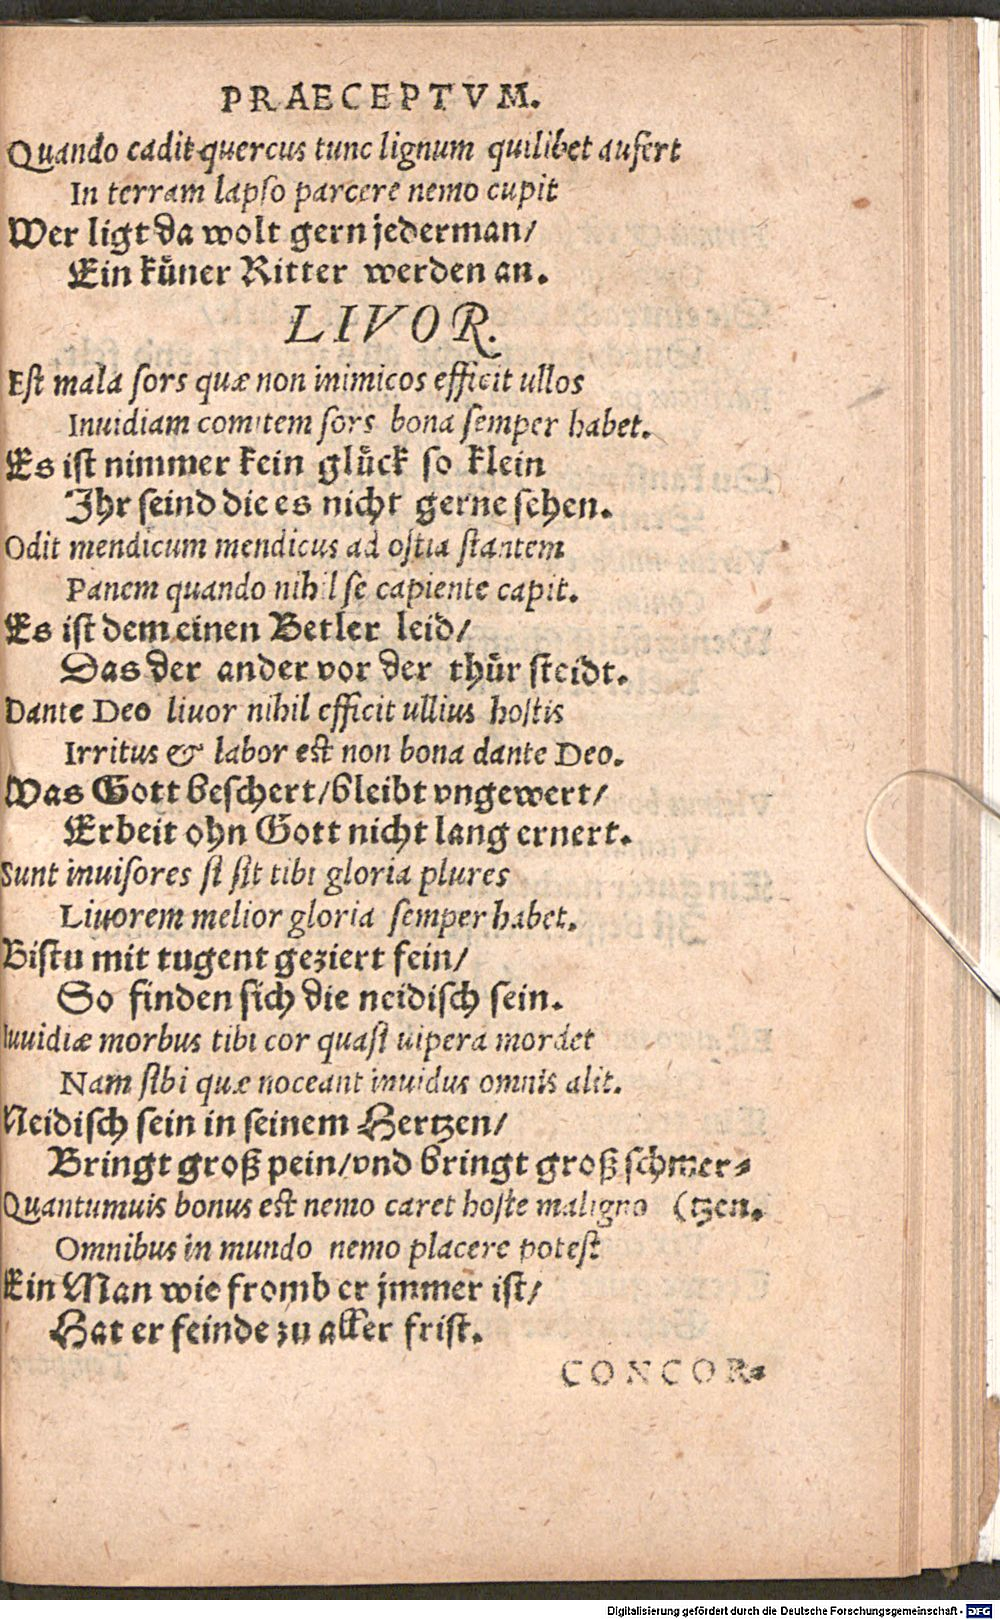 PRAECEPTVM.
Quando cadit quercus tunc lignum quilibet aufert
In terram lapſo parcere nemo cupit
Wer ligt da wolt gern jederman/
Ein küner Ritter werden an.
LIVOR.
Eſt mala ſors quæ non inimicos efficit ullos
Inuidiam comitem ſors bona ſemper habet.
Es iſt nimmer kein glück ſo klein
Ihr ſeind die es nicht gerne ſehen.
Odit mendicum mendicus ad oſtia ſtantem
Panem quando nihil ſe capiente capit.
Es iſt dem einen Betler leid/
Das der ander vor der thür ſteidt.
Dante Deo liuor nihil efficit ullius hoſtis
Irritus & labor eſt non bona dante Deo.
Was Gott beſchert/bleibt vngewert/
Erbeit ohn Gott nicht lang ernert.
Sunt inuiſores ſi ſit tibi gloria plures
Liuorem melior gloria ſemper habet.
Biſtu mit tugent geziert fein/
So finden ſich die neidiſch ſein.
Inuidiæ morbus tibi cor quaſi uipera mordet
Nam ſibi quæ noceant inuidus omnis alit.
Neidiſch ſein in ſeinem Hertzen/
Bringt groß pein/vnd bringt groß ſchmer⸗
Quantumuis bonus eſt nemo caret hoſte maligno (tzen.
Omnibus in mundo nemo placere poteſt
Ein Man wie fromb er jmmer iſt/
Hat er feinde zu aller friſt.
CONCOR⸗
Digitalisierung gefördert durch die Deutsche Forschungsgemeinschaft - DFG